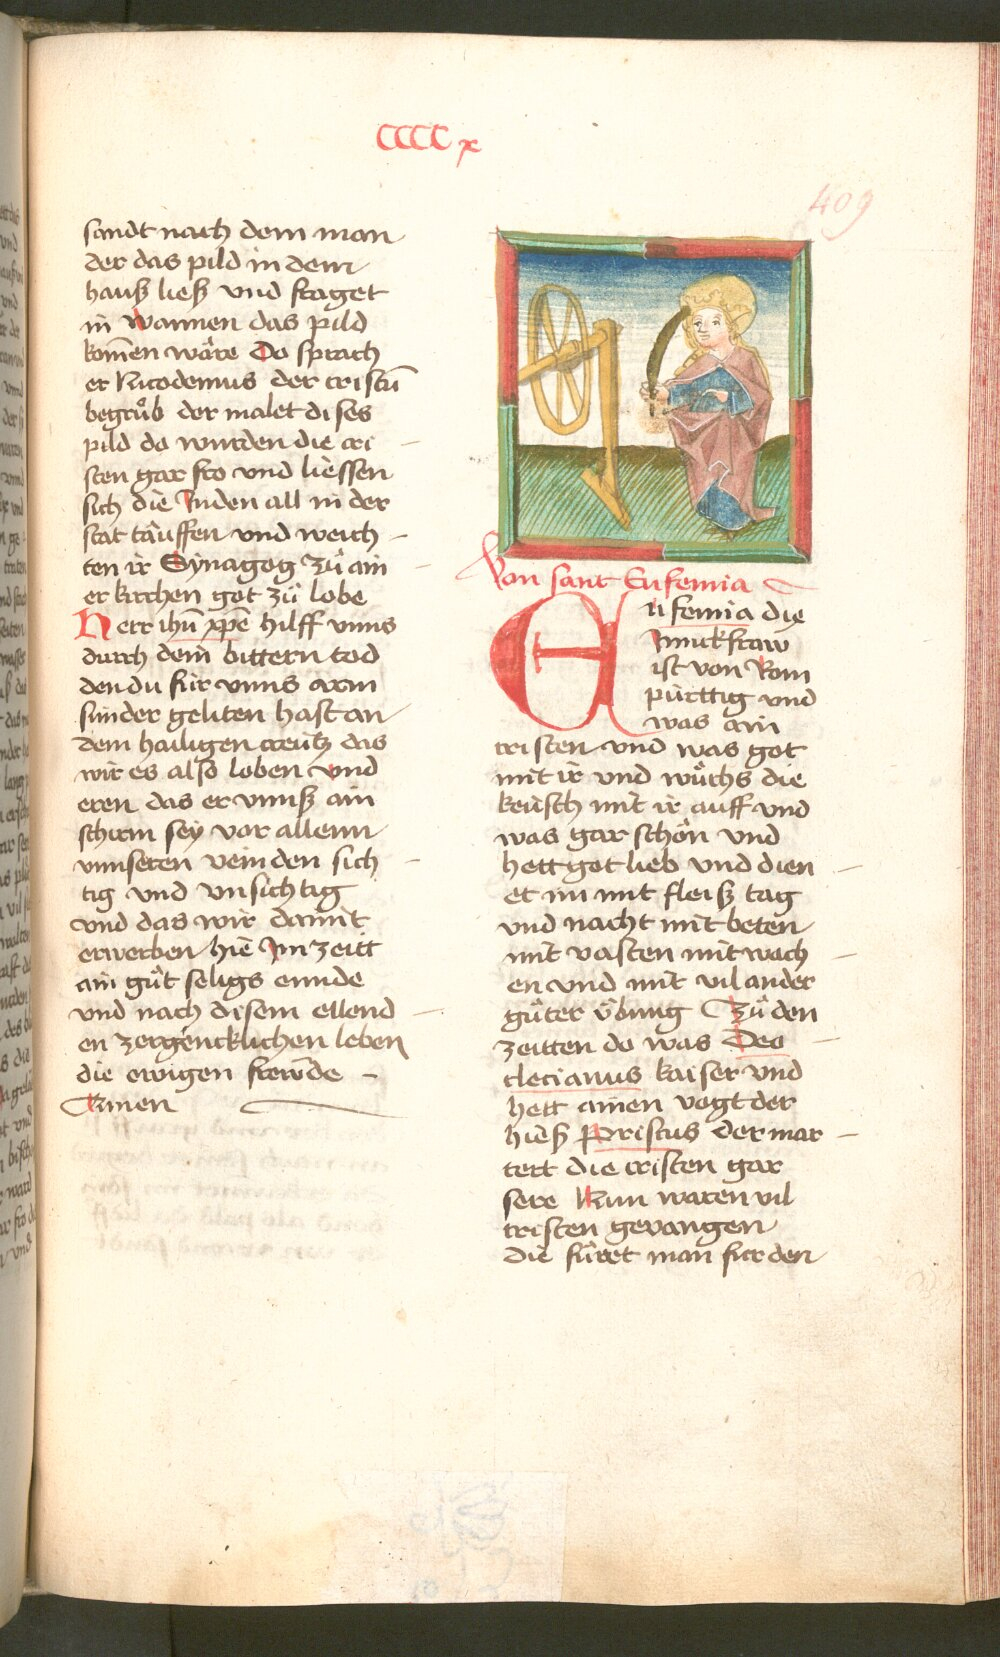 CCCC x
409
sandt nach dem man
der das pild in dem
hauß ließ vnd fraget
in Wannen das pild
komen wäre Do sprach
er Nicodemus der cristū
begrůb der malet dises
pild do wurden die cri
sten gar fro vnd liessen
sich die Juden all in der
stat täuffen vnd weich
ten ir Synagog zů ain
er kirchen got zů lobe
Herr ihū xp̄e hilff vnns
durch dein bittern tod
den du für vnns arm
sünder geliten hast an
dem hailigen creutz das
wir es also loben vnd
eren das er vnnß ain
schirm sey vor allenn
vnnseren veinden sich
tig vnd vnsichtig
vnd das wir damit
erwerben hie Im zeitt
ain gůt seligs ennde
vnd nach disem ellend
en zergencklichen leben
die ewigen frewde
Amen
Von sant Eufemia
Eufemia die
Junckfraw
ist von Rom
pürttig vnd
was ain
cristen vnd was got
mit ir vnd wůchs die
keüsch mit ir auff vnd
was gar schön vnd
hett got lieb vnd dien
et im mit fleiß tag
vnd nacht mit beten
mit vasten mit wach
en vnd mit vil ander
gůter vbung Zů den
zeitten do was Deo
clecianus kaiser vnd
hett ainen vogt der
hieß Priscus der mar
tert die cristen gar
sere Nun waren vil
cristen gevangen
die fůrt man für den